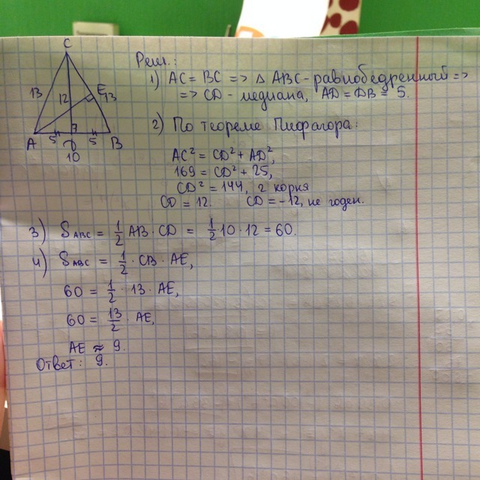 C
13
12
E
13
A
5
D
5
B
10
Реш.:
1) AC = BC => △ ABC - равнобедренный =>
=> CD - медиана, AD = DB = 5.
2) По теореме Пифагора:
AC² = CD² + AD²,
169 = CD² + 25,
CD² = 144, 2 корня
CD = 12. CD = -12, не годен.
3) S ABC = 1/2 AB · CD = 1/2 10 · 12 = 60.
4) S ABC = 1/2 · CB · AE,
60 = 1/2 · 13 · AE,
60 = 13/2 · AE,
AE ≈ 9.
Ответ: 9.